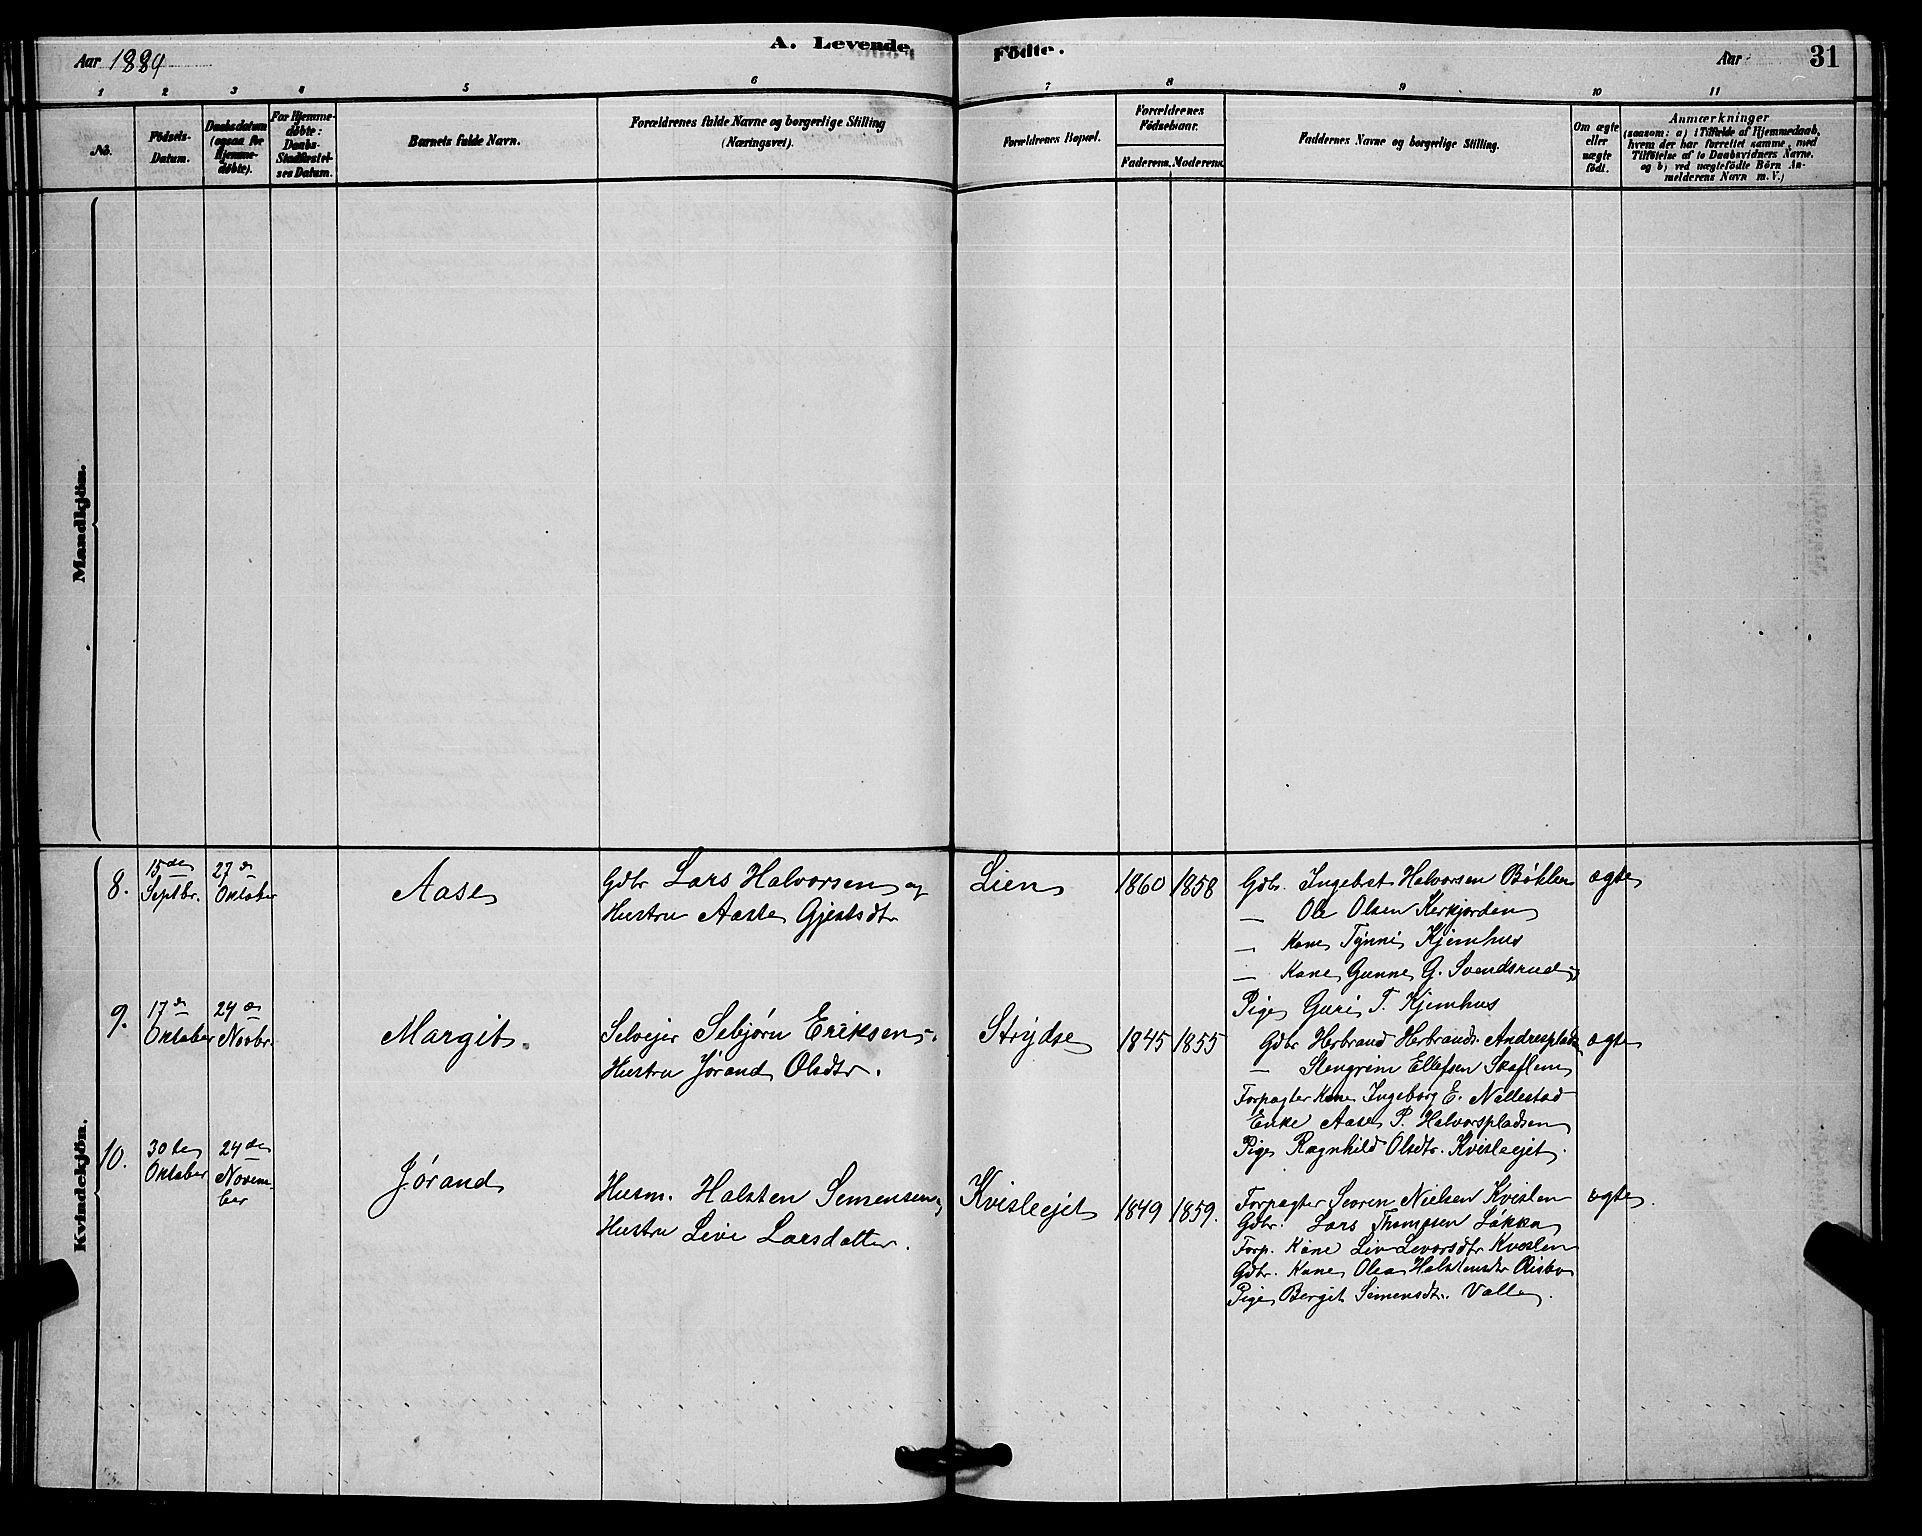 Aar 1884
A. Levende
Födte.
Aar
31
1 2 3 4 5 6 7 8 9 10 11
No.
Födsels-
Datum.
Daabsdatum
(ogsaa for
Hjemme-
døbte).
For Hjemme-
døbte:
Daabs-
Stadfæstel-
ses Datum.
Barnets fulde Navn.
Forældrenes fulde Navne og borgerlige Stilling
(Næringsvei).
Forældrenes Bopæl.
Forældrenes
Födselsaar.
Faderens. Moderens.
Faddernes Navne og borgerlige Stilling.
Om ægte
eller
uægte
födt.
Anmærkninger
(saasom: a) i Tilfælde af Hjemmedaab,
hvem der har forrettet samme, med
Tilføielse af to Daabsvidners Navne.
og b) ved uægtefödte Börn An-
melderens Navn m. V.)
Mandkjön.
Kvindekjön.
8.
15de
Septbr.
27de
Oktober
Aase
Gdbr Lars Halvorsen og
Hustru Aaste Gjestsdtr
Lien
1860 1858
Gdbr. Ingebret Halvorsen Böhler
— Ole Olsen Kerkjorden
— Kone Tÿnni Kjemhus
— Kone Gunne G. Svendsrud
Pige Guri T. Kjemhus
ægte
9.
17de
Oktober
24de
Novbr.
Margit.
Selvejer Sebjørn Eriksen
Hustru Jørand Olsdtr.
Strydse
1845 1855
Gdbr Herbrand Herbrands. Andresplads
— Stengrim Ellefsen Skaflem
Forpagter Kone Ingeborg E. Nillestad
Enke Aase P. Halvorspladsen
Pige Ragnhild Olsdtr. Kvisleejet.
ægte
10.
30te
Oktober
24de
Novem-
ber
Jørand
Husm. Halsten Simensen
Hustru Live Larsdatter.
Kvisleejet
1849 1859.
Forpagter Soren Nielsen Kvislen
Gdbr. Lars Thompsen Løkka
Forp. Kone Liv Levorsdtr Kvislen
Gdbr. Kone Olea Halstensdtr Risbo
Pige Bergit Simensdtr. Valle.
ægte.